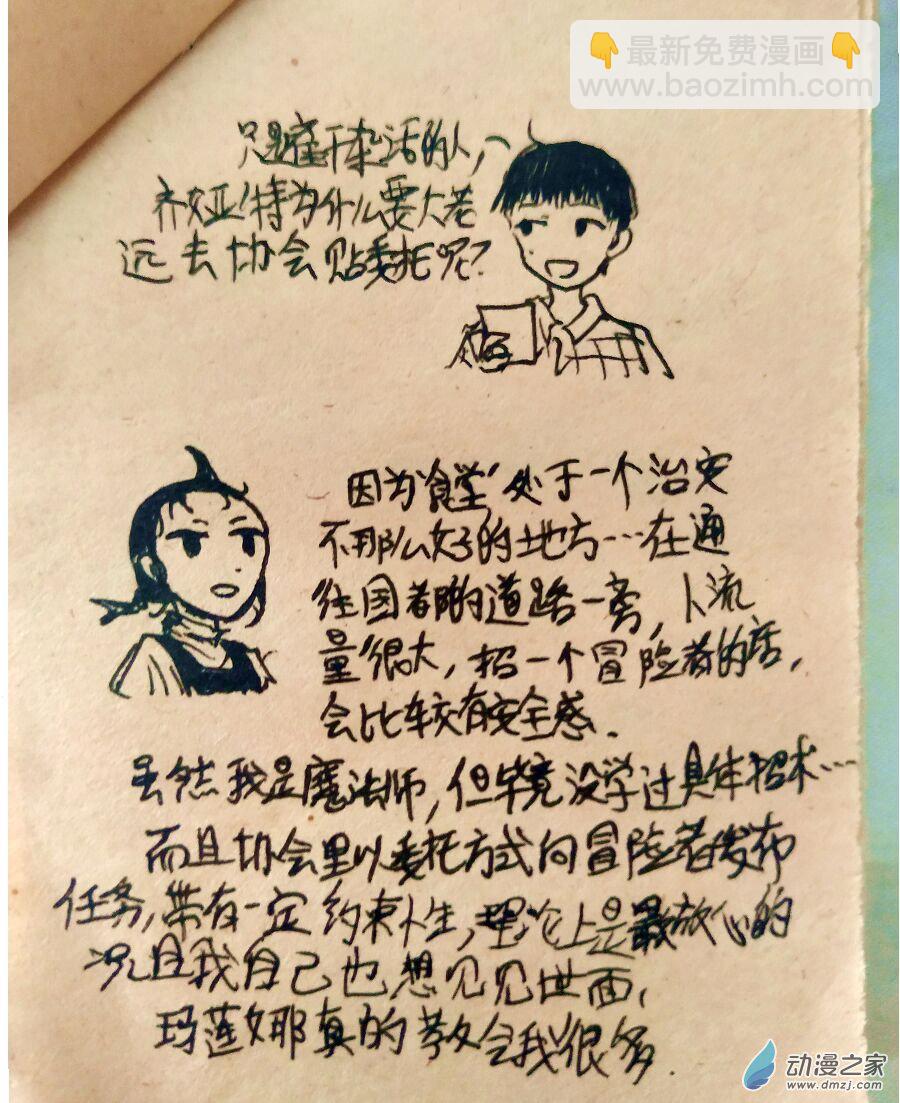 👇最新免费漫画👇
www.baozimh.com
只是雇干杂活的人,
齐娅特为什么要大老
远去协会贴委托呢?
因为"食堂"处于一个治安
不那么好的地方…在通
往国都的道路一旁,人流
量很大,招一个冒险者的话,
会比较有安全感.
虽然我是魔法师,但毕竟没学过具体招术…
而且协会里以委托方式向冒险者发布
任务,带有一定约束性,理论上是最放心的
况且我自己也想见见世面,
玛莲娜真的教会我很多.
动漫之家
www.dmzj.com